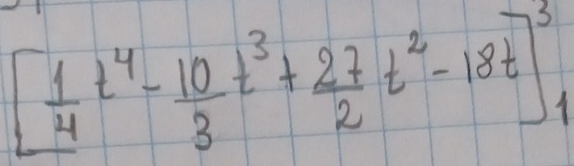 [1/4 t^4 - 10/3 t^3 + 27/2 t^2 - 18t]_1^3